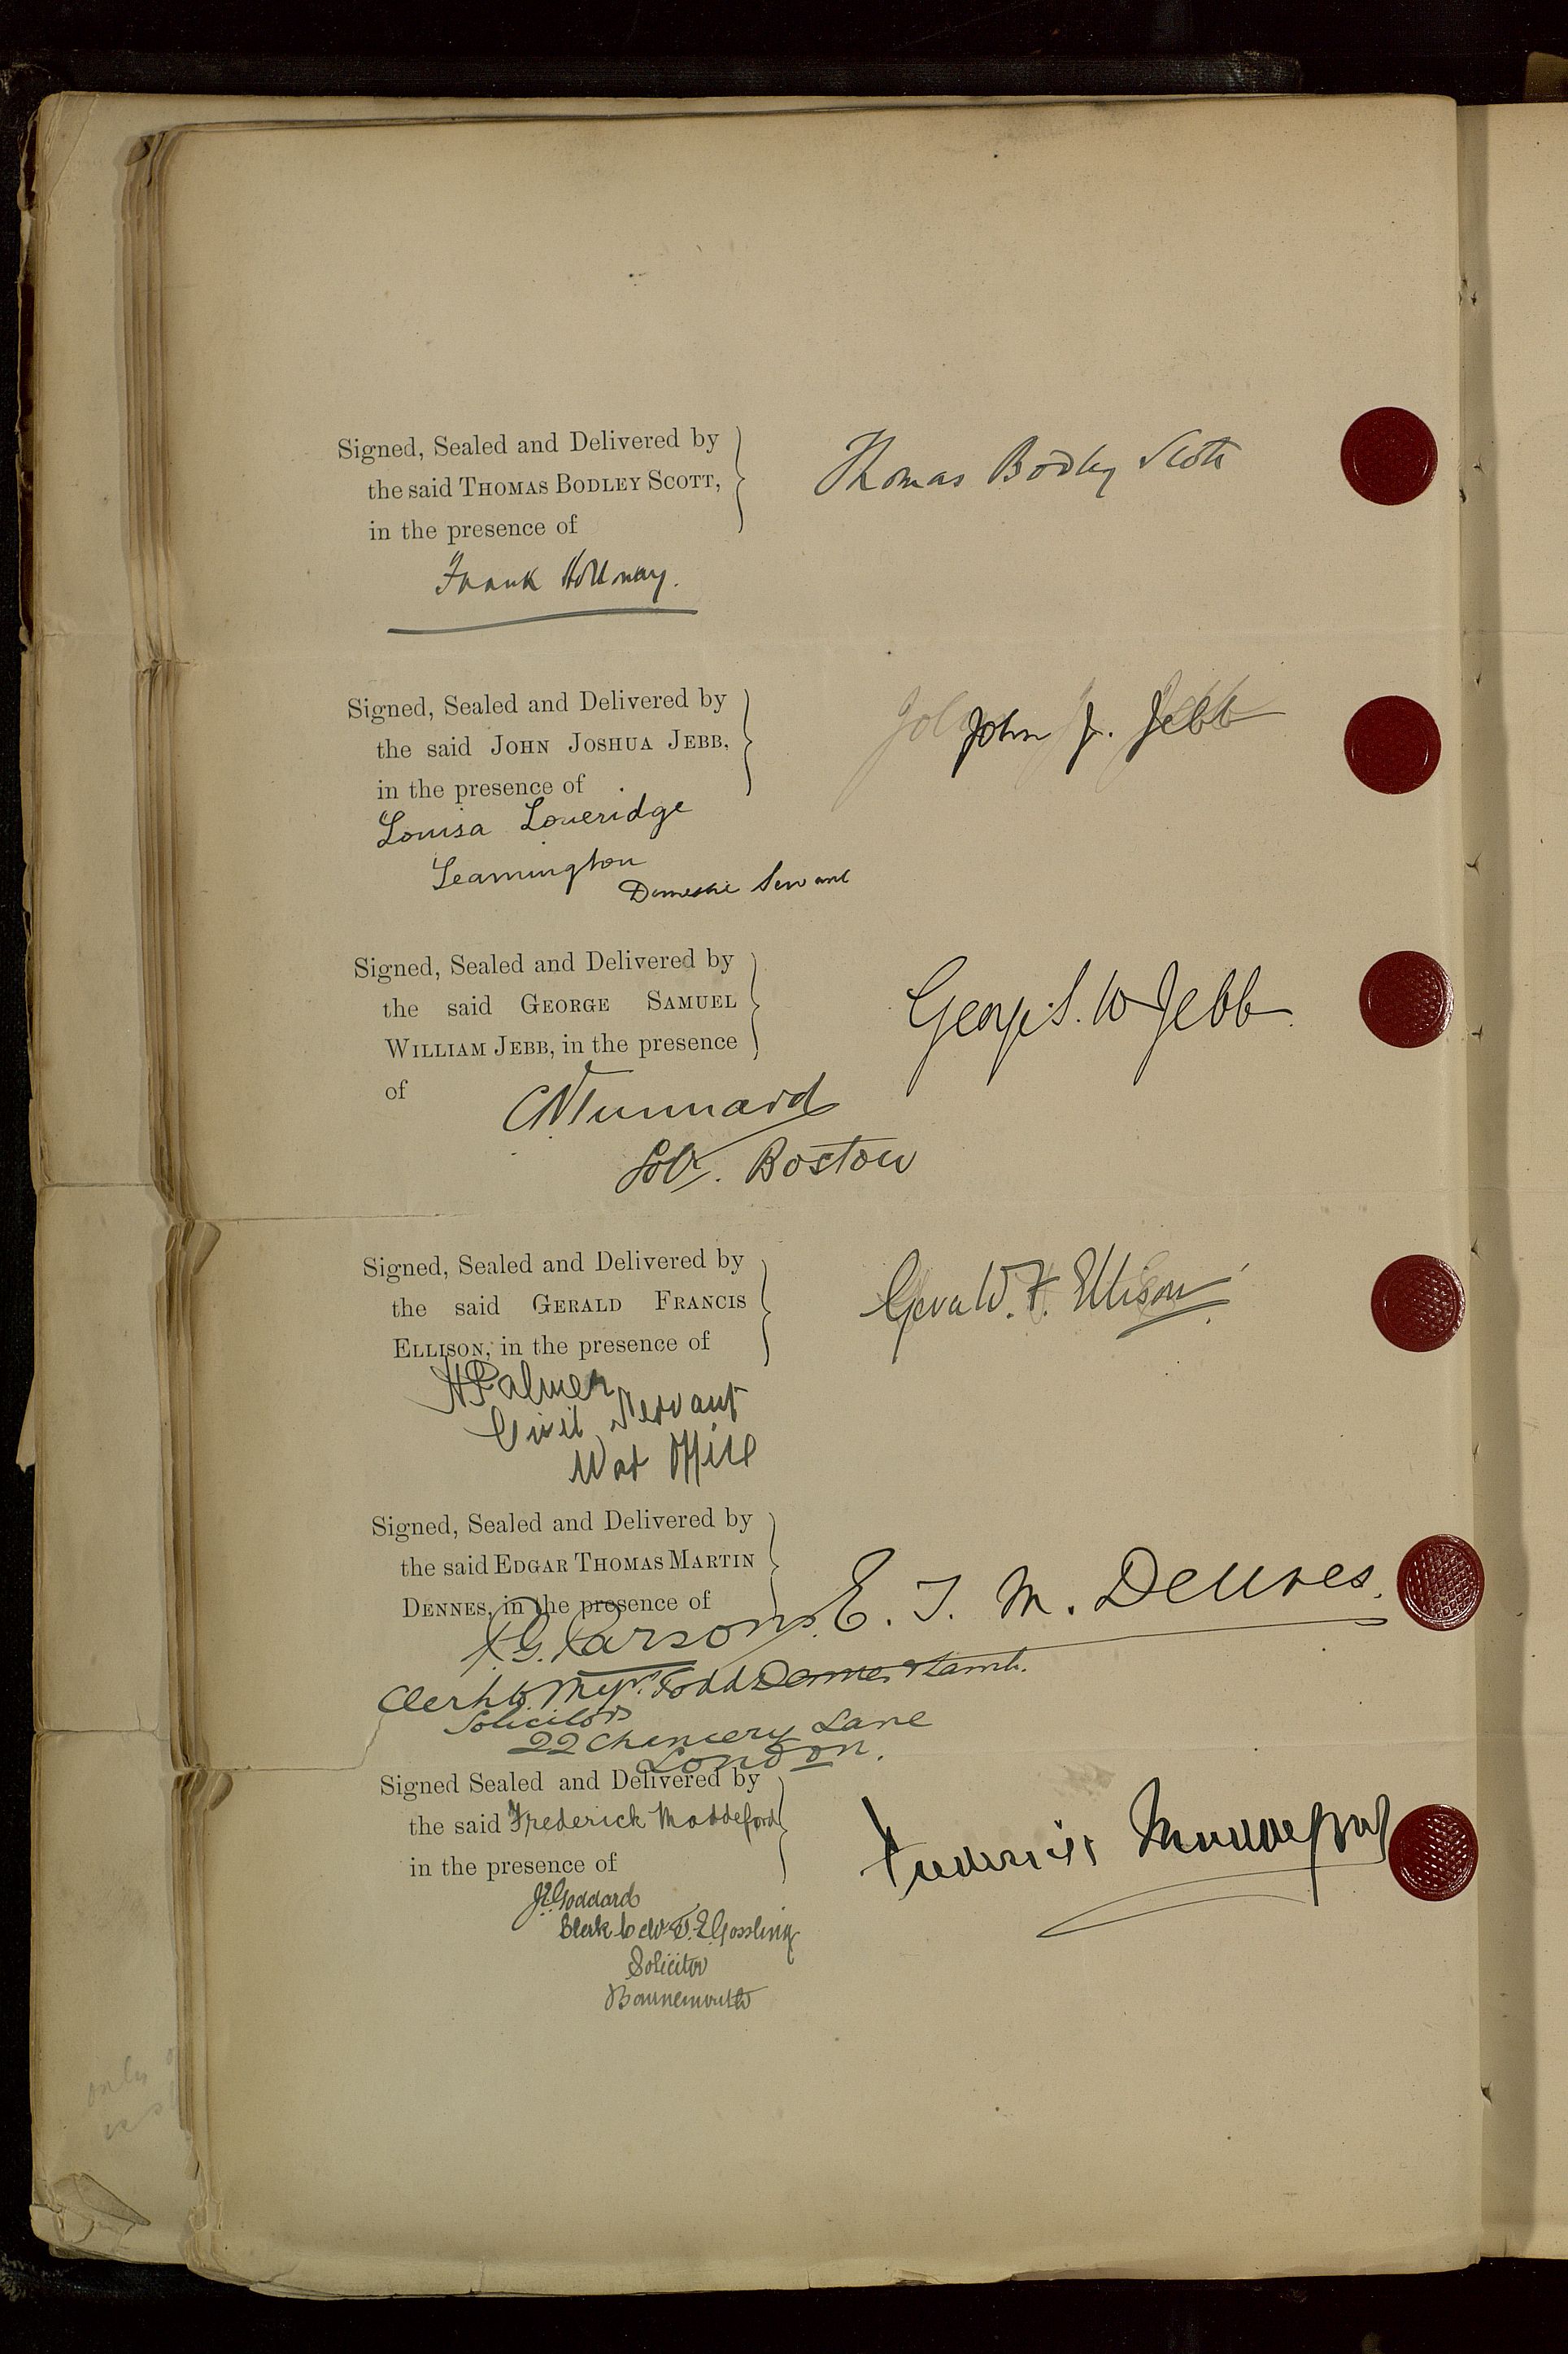 Signed, Sealed and Delivered by
the said THOMAS BODLEY SCOTT,
in the presence of
Thomas Bodley Scott
Frank Holloway.
Signed, Sealed and Delivered by
the said JOHN JOSHUA JEBB,
in the presence of
John J. Jebb
Louisa Loveridge
Leamington
Domestic Servant
Signed, Sealed and Delivered by
the said GEORGE SAMUEL
WILLIAM JEBB, in the presence
of
George S. W Jebb
Tunnard
Solr. Boston
Signed, Sealed and Delivered by
the said GERALD FRANCIS
ELLISON, in the presence of
Gerald. F. Ellison
H Palmer
Civil Servant
War Office
Signed, Sealed and Delivered by
the said EDGAR THOMAS MARTIN
DENNES, in the presence of
E. T. M. Dennes.
G. Parsons.
Clerk to Messrs. Todd Dennes & Lamb.
Solicitors
22 Chancery Lane
London.
Signed Sealed and Delivered by
the said Frederick Moddeford
in the presence of
Frederick Moddeford
Goddard
Clerk to Mr T. E Gossling
Solicitor
Bournemouth
only